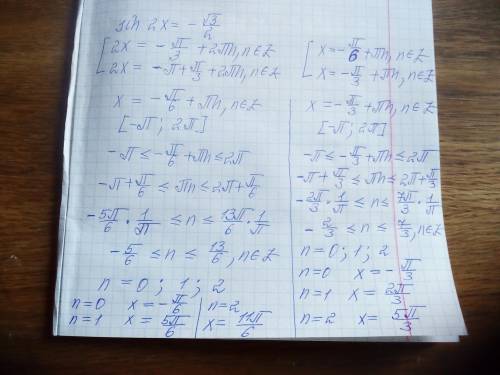 sin 2x = -√3/2
[ 2x = -π/3 + 2πn, n∈Z
2x = -π + π/3 + 2πn, n∈Z
x = -π/6 + πn, n∈Z
[-π; 2π]
-π ≤ -π/6 + πn ≤ 2π
-π + π/6 ≤ πn ≤ 2π + π/6
-5π/6 · 1/π ≤ n ≤ 13π/6 · 1/π
-5/6 ≤ n ≤ 13/6, n∈Z
n = 0; 1; 2
n=0 x = -π/6
n=1 x = 5π/6
n=2
x = 11π/6
[ x = -π/6 + πn, n∈Z
x = -π/3 + πn, n∈Z
x = -π/3 + πn, n∈Z
[-π; 2π]
-π ≤ -π/3 + πn ≤ 2π
-π + π/3 ≤ πn ≤ 2π + π/3
-2π/3 · 1/π ≤ n ≤ 7π/3 · 1/π
-2/3 ≤ n ≤ 7/3, n∈Z
n = 0; 1; 2
n=0 x = -π/3
n=1 x = 2π/3
n=2 x = 5π/3